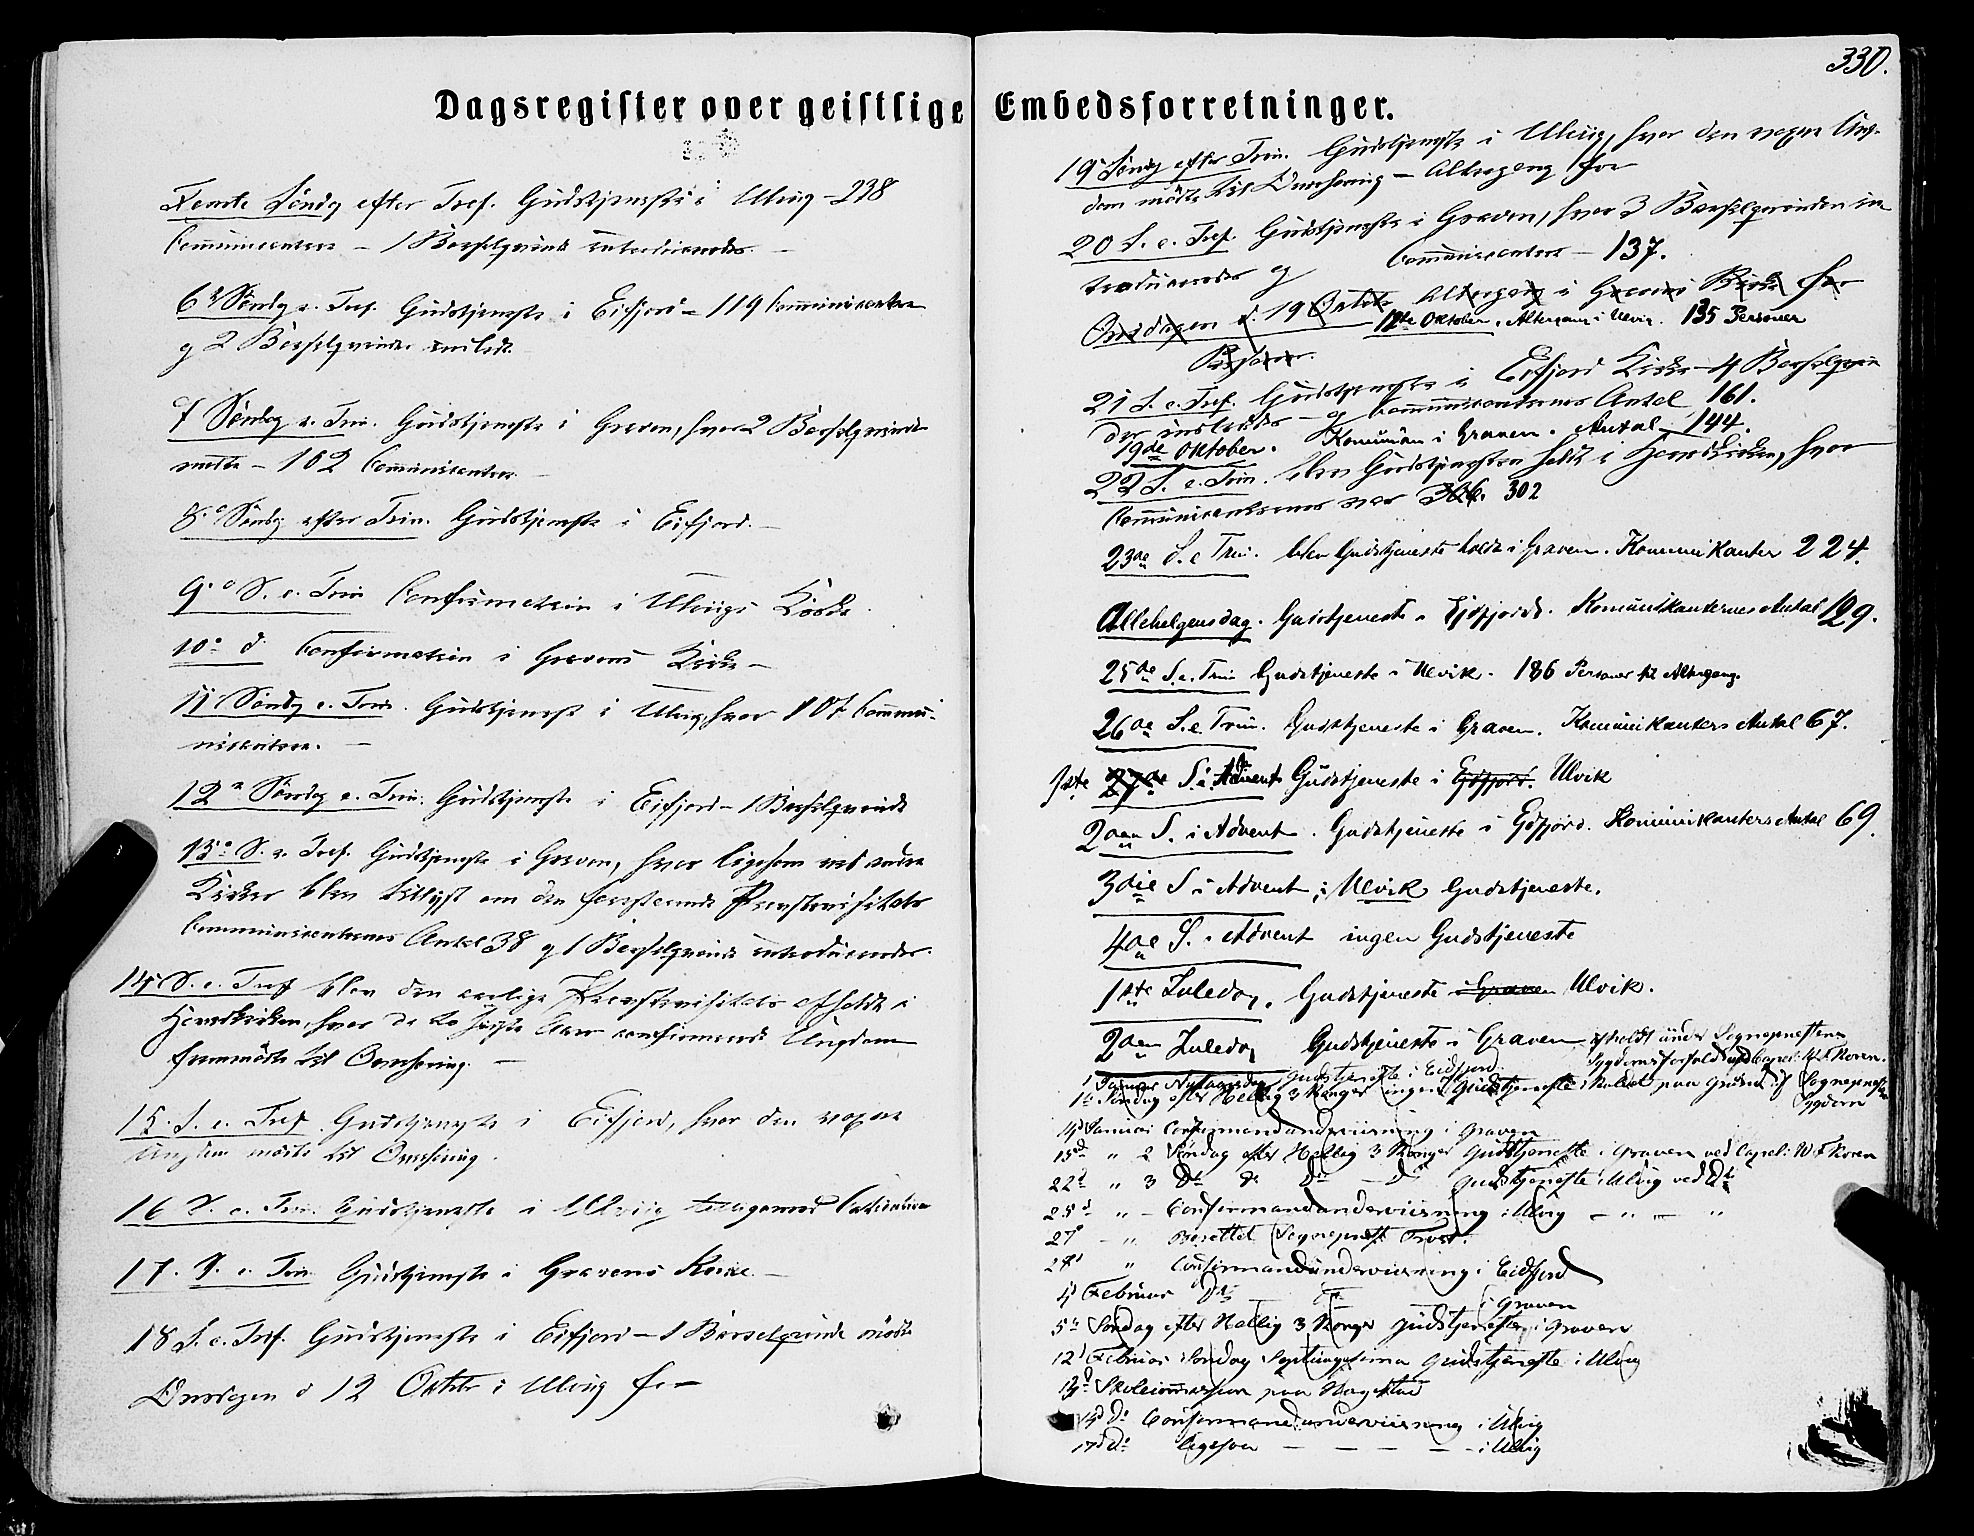 330.
Dagsregister over geistlige Embedsforretninger.
Femte Søndg efter Tref. Gudstjeneste i Ulvig - 238
Communicantere - 1 Barselqvinde introduceredes. -
6te Søndg e. Tref. Gudstjeneste i Eifjord - 119 Communicantere
og 2 Barselqvinder indledt.
7 Søndag e. Trin. Gudstjeneste i Graven, hvor 2 Barselqvinder
mødte - 102 Communicantere -
8.e Søndg efter Trin. Gudstjeneste i Eifjord. -
9.e S. e. Trin Confirmation i Ulvigs Kirke.
10e d Confirmation i Gravens Kirke -
11 Søndg e. Trin. Gudstjeneste i Ulvig, hvor 107 Commu-
nicantere. -
12e Søndag e. Trin. Gudstjeneste i Eifjord - 1 Barselqvinde
13e S. e. Tref. Gudstjeneste i Graven, hvor ligesom ved andre
Kirker blev tillyst om den forestaaende Provstevisitats
Communicanternes Antal 38 og 1 Barselqvinde introduceredes.
14 S. e. Tref blev den aarlige Provstevisitats afholdt i
Hovedkirken, hvor de to sidste Aars confirmerede Ungdom
fremmødte til Overhøring. -
15. S. e. Tref Gudstjeneste i Eifjord, hvor den voxne
Ungdom mødte til Overhøring.
16 S. e. Trin. Gudstjeneste i Ulvig
17. S. e. Trin. Gudstjeneste i Gravens Kirke. -
18 S. e. Tref. Gudstjeneste i Eifjord - 1 Barselqvinde mødte
Onsdagen d 12 Octbr i Ulvig for
19 Søndg efter Trin. Gudstjeneste i Ulvig, hvor den voxne Ung-
dom mødte til Overhøring - Altergang for
20 S. e. Tref. Gudstjeneste i Graven, hvor 3 Barselqvinder in-
troduceredes og Communicantere - 137.
Onsdagen d. 19 Octobr Altergang i Gravens Kirke for
12te Oktober. Altergang i Ulvig. 135 Personer
Personer.
21 S. e. Tref. Gudstjeneste i Eifjord Kirke - 4 Barselqvin
der indlededes - og Communicanternes Antal 161.
19de Oktober. Komunion i Graven. Antal 144.
22 S. e. Trin. blev Gudstjenesten holdt i Hovedkirken, hvor
Communicanternes var 306. 302
23de S. e Trin. blev Gudstjeneste holdt i Graven. Kommunikanter 224.
Allehelgensdag. Gudstjeneste i Ejdfjord. Komunikanternes Antal 129.
25de S. e. Trin Gudstjeneste i Ulvik. 186 Personer til Altergang.
26de S. e Trin. Gudstjeneste i Graven. Komunikanters Antal 67.
1ste 27de S. i Advent Gudstjeneste i Ejdfjord. Ulvik
2den S. i Advent. Gudstjeneste i Ejdfjord. Komunikanters Antal 69.
3die S i Advent i Ulvik Gudstjeneste.
4de S. i Advent ingen Gudstjeneste
1ste Juledag. Gudstjeneste i Graven Ulvik.
2den Juledag Gudstjeneste i Graven, afholdt under Sognepræstens
Sygdomsforfald ved Capel: W. F. Koren.
1 Januar Nytaarsdag Gudstjeneste i Eidfjord.
1te Søndag efter Hellig 3 Konger ingen Gudstjeneste holdt paa Grund af Sognepræstens
Sygdom
14d Januar Confirmandunderviisning i Graven
15de " 2 Søndag efter Hellig 3 Konger Gudstjeneste i Graven ved Capel: W F Koren
22d " 3 Do do Do - D Gudstjeneste i Ulvig ved Do
25d " - Confirmandunderviisning i Ulvig - " - "
27d - " Berettet Sognepræst
28d " Confirmandunderviisning i Eidfjord
4d Februar Do - i Graven
5te Søndag efter Hellig 3 Konger Gudstjeneste i Graven
12d Februar Søndag Septuagesima Gudstjeneste i Ulvig
13d Skolecommission paa Hagestad
14d Do Confirmandunderviisning i Ulvig
17d Do ligesaa - - - - i Ulvig